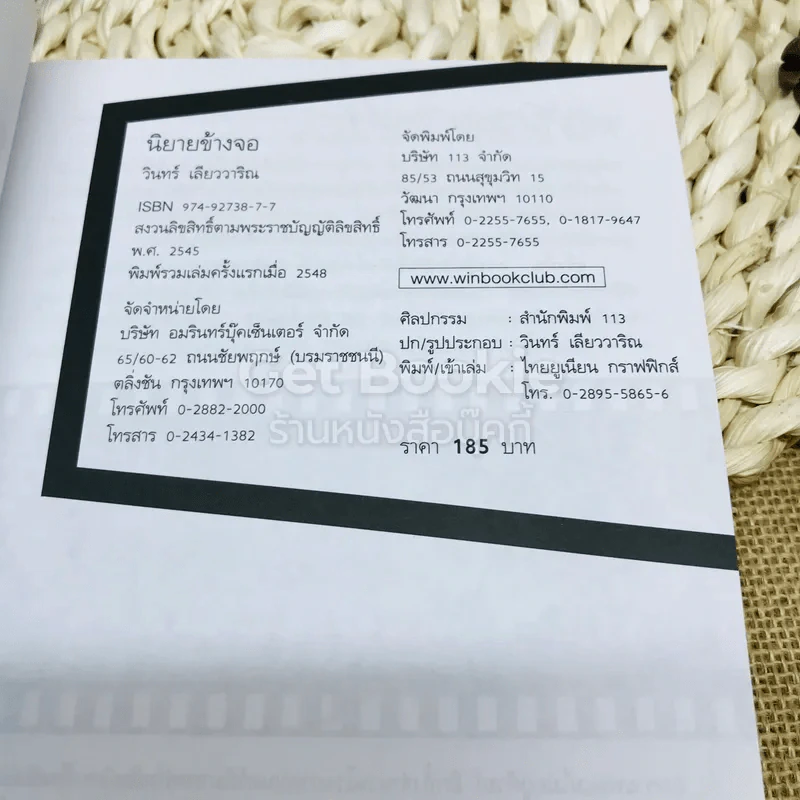 นิยายข้างจอ
วินทร์ เลียววาริณ
ISBN 974-92738-7-7
สงวนลิขสิทธิ์ตามพระราชบัญญัติลิขสิทธิ์
พ.ศ. 2545
พิมพ์รวมเล่มครั้งแรกเมื่อ 2548
จัดจำหน่ายโดย
บริษัท อมรินทร์บุ๊คเซ็นเตอร์ จำกัด
65/60-62 ถนนชัยพฤกษ์ (บรมราชชนนี)
ตลิ่งชัน กรุงเทพฯ 10170
โทรศัพท์ 0-2882-2000
โทรสาร 0-2434-1382
จัดพิมพ์โดย
บริษัท 113 จำกัด
85/53 ถนนสุขุมวิท 15
วัฒนา กรุงเทพฯ 10110
โทรศัพท์ 0-2255-7655, 0-1817-9647
โทรสาร 0-2255-7655
www.winbookclub.com
ศิลปกรรม : สำนักพิมพ์ 113
ปก/รูปประกอบ : วินทร์ เลียววาริณ
พิมพ์/เข้าเล่ม : ไทยยูเนียน กราฟฟิกส์
โทร. 0-2895-5865-6
ราคา 185 บาท
Get Bookie
ร้านหนังสือบุ๊คกี้